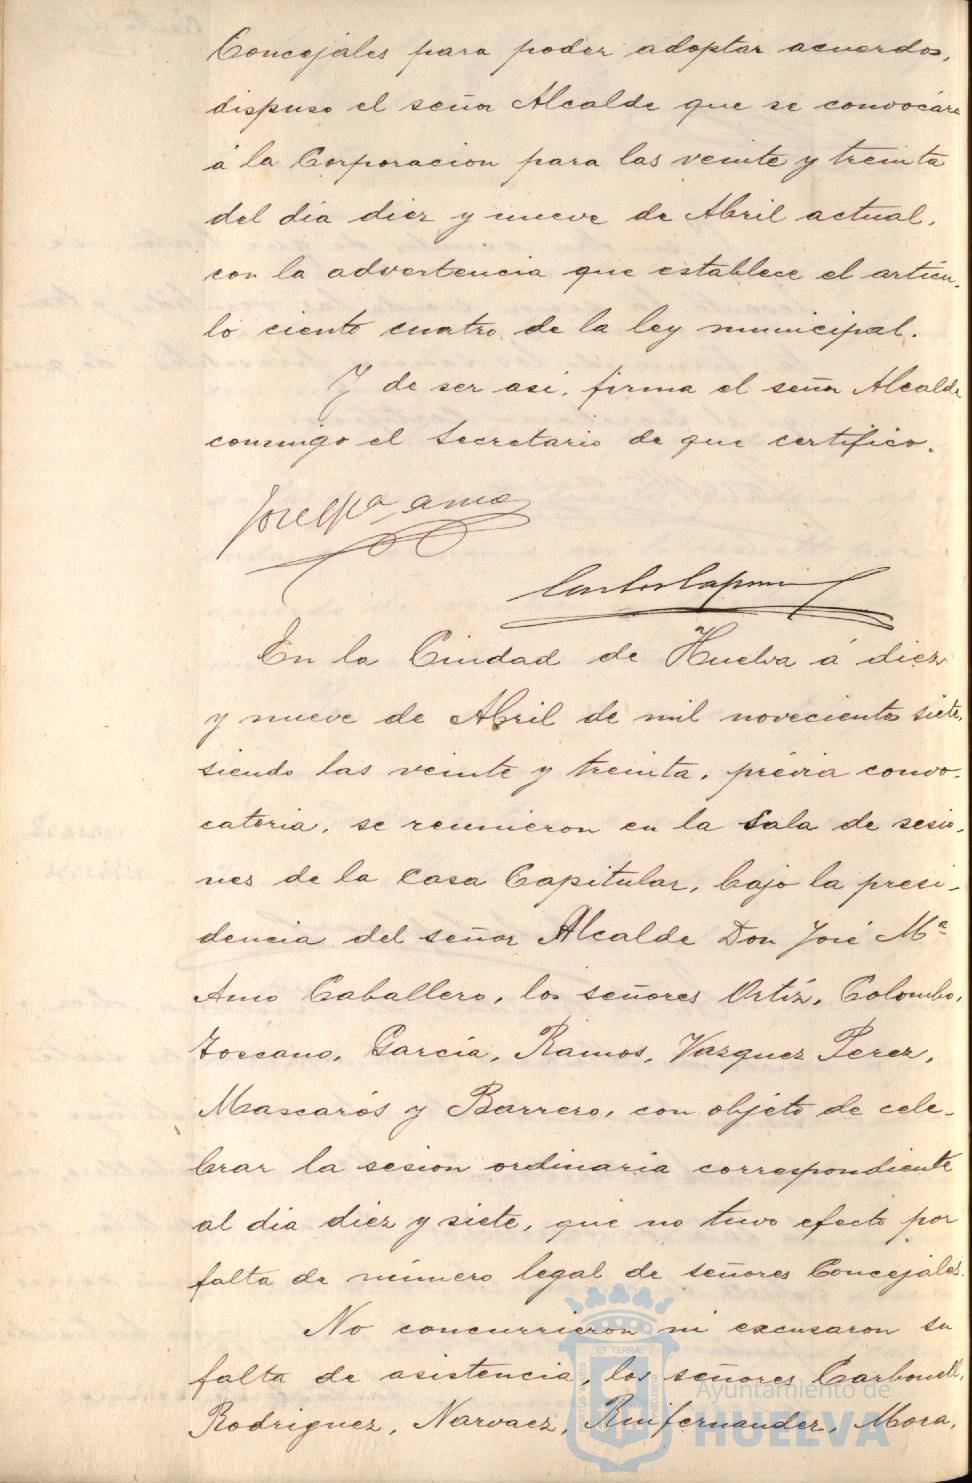 Concejales para poder adoptar acuerdos,
dispuso el señor Alcalde que se convocára
á la Corporacion para las veinte y treinta
del dia diez y nueve de Abril actual,
con la advertencia que establece el articu-
lo ciento cuatro de la ley municipal.
Y de ser así, firma el señor Alcalde
conmigo el Secretario de que certifico.
José Mª Amo
En la Ciudad de Huelva á diez
y nueve de Abril de mil novecientos siete,
siendo las veinte y treinta, prévia convo-
catoria, se reunieron en la Sala de sesio-
nes de la Casa Capitular, bajo la presi-
dencia del señor Alcalde Don José Mª
Amo Caballero, los señores Ortíz, Colombo,
Toscano, García, Ramos, Vazquez Perez,
Mascarós y Barrero, con objeto de cele-
brar la sesion ordinaria correspondiente
al dia diez y siete, que no tuvo efecto por
falta de número legal de señores Concejales.
No concurrieron ni excusaron su
falta de asistencia, los señores Carbonell,
Rodriguez, Narvaez, Ruifernandez, Mora,
Ayuntamiento de
HUELVA